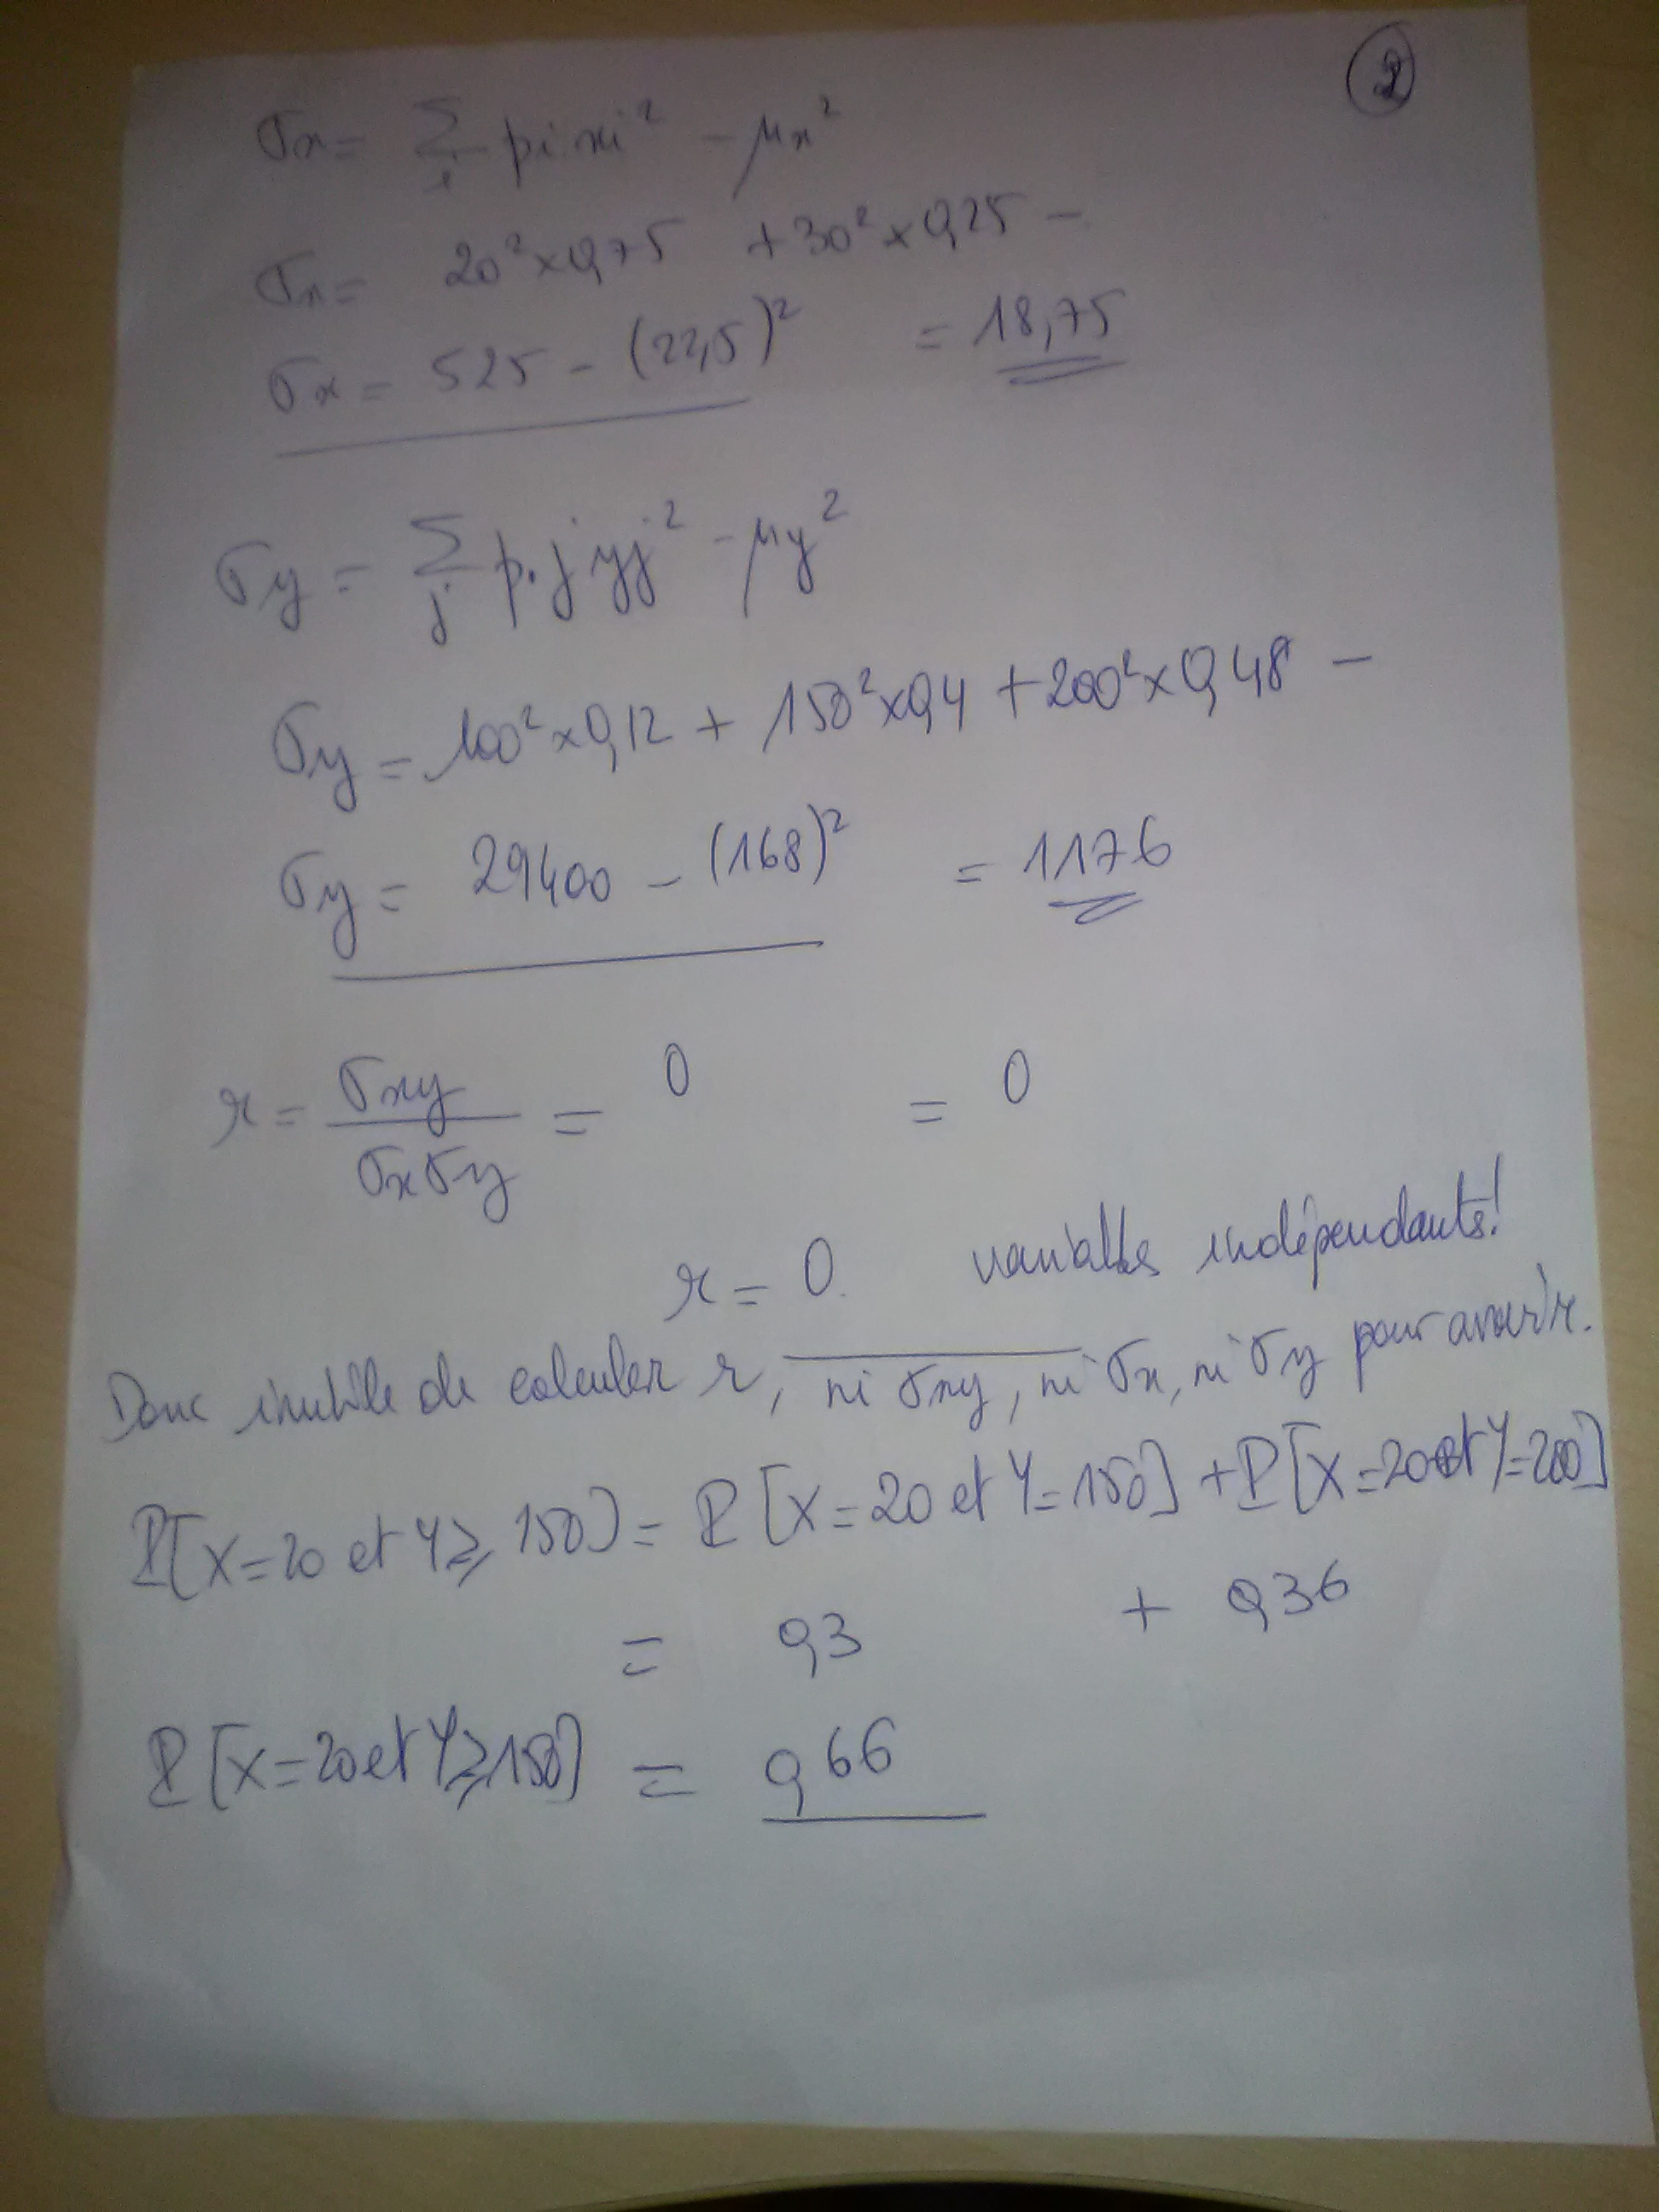 2
σx = Σ i pi. xi² - μx²
σx = 20² × 0,75 + 30² × 0,25 -
σx = 525 - (22,5)² = 18,75
σy = Σ j p.j yj² - μy²
σy = 100² × 0,12 + 150² × 0,4 + 200² × 0,48 -
σy = 29400 - (168)² = 1176
r = σxy / σx σy = 0 = 0
r = 0. variables indépendants!
Donc inutile de calculer r, ni σxy, ni σx, ni σy pour avoir r.
P[X=20 et Y⩾150] = P[X=20 et Y=150] + P[X=20 et Y=200]
= 0,3 + 0,36
P[X=20 et Y⩾150] = 0,66